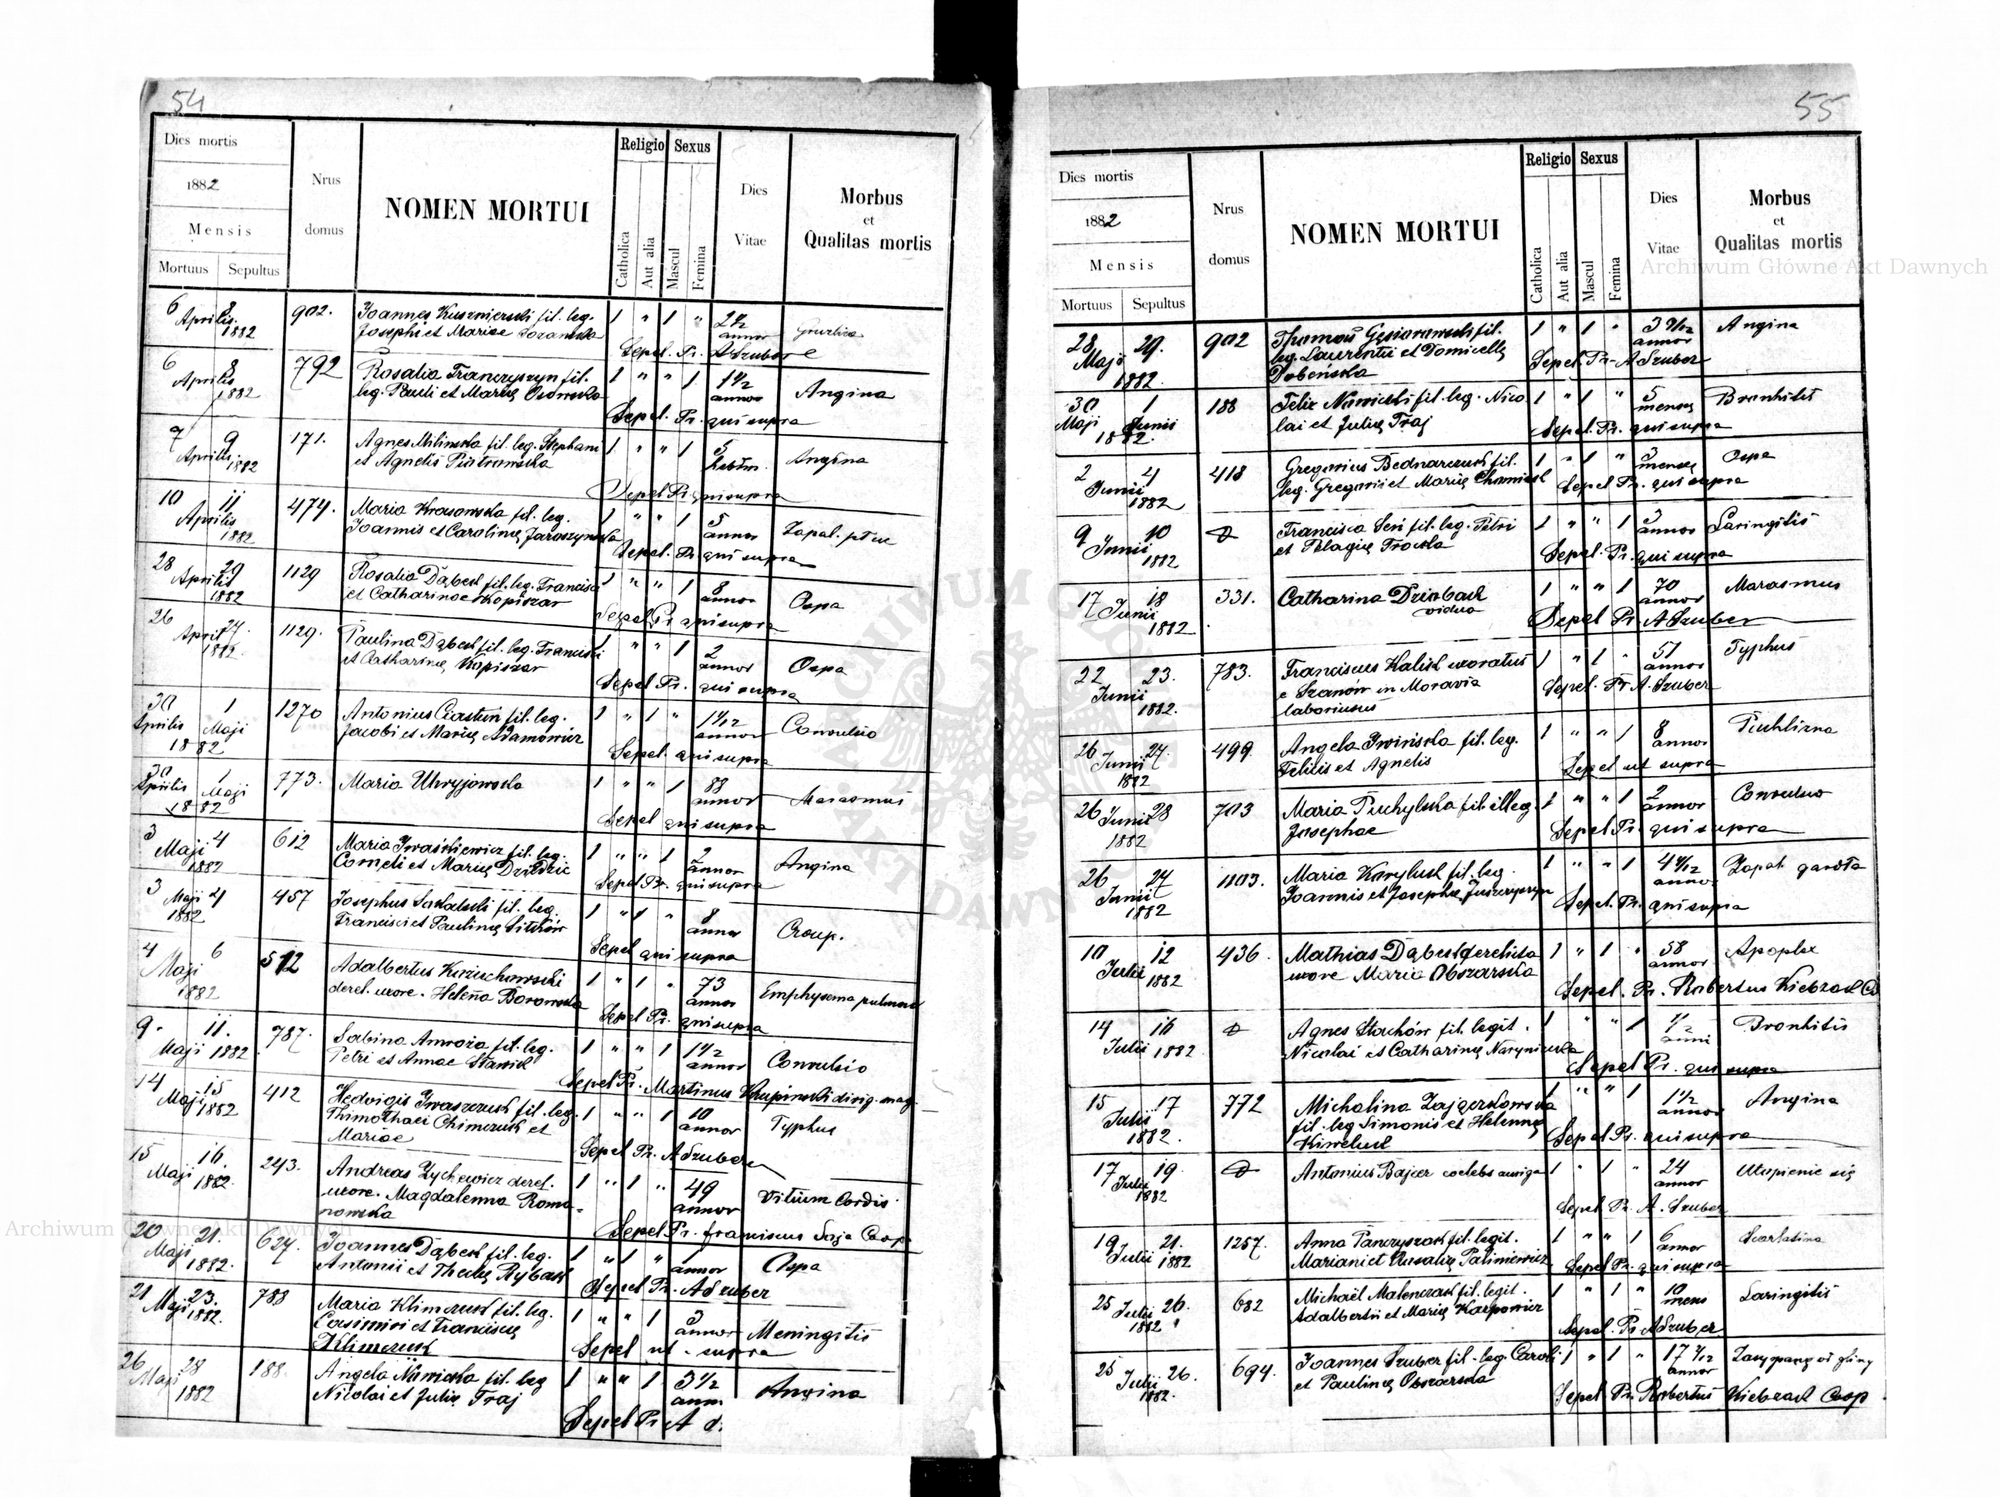 54
Dies mortis
1882
Mensis
Mortuus Sepultus
Nrus
domus
NOMEN MORTUI
Religio
Catholica
Aut alia
Sexus
Mascul
Femina
Dies
Vitae
Morbus
et
Qualitas mortis
6 8 902. Joannes Kuszmierski fil. leg. 1 " 1 " 2 1/2
Aprilis annor
1882 Josephi et Mariae
Sepel. Pr. A Szuber
6 8 792 Rosalia Franczyszyn fil. 1 " " 1 1 1/2 Angina
Aprilis annor
1882 leg. Pauli et Marię Osowska
Sepel. Pr. qui supra
7 9 171. Agnes Milinska fil. leg. Stephani 1 " " 1 5 Angina
Aprilis hebdm.
1882 et Agnetis Piotrowska
Sepel Pr. qui supra
10 11 474. Maria Krasowska fil. leg. 1 " " 1 5 Zapal. płuc
Aprilis annor
1882 Joannis et Carolinę Jaroszynska
Sepel. Pr. qui supra
28 29 1129 Rosalia Dąbek fil. leg. Francisci 1 " " 1 8 Ospa
Aprilis annor
1882 et Catharinae Kopiszar
Sepel Pr qui supra
26 27. 1129. Paulina Dąbek fil. leg. Francisci 1 " " 1 2 Ospa
April annor
1882. et Catharinę Kopiszar
Sepel Pr. qui supra
30 1 1270 Antonius Ciastun fil. leg. 1 " 1 " 1 1/12 Convulsio
Aprilis Maji annor
1882 Jacobi et Marię Adamowicz
Sepel. qui supra
30 1 773. Maria Uhryjowska 1 " " 1 88 Marasmus
Aprilis Maji annor
1882
Sepel qui supra
3 4 612 Maria Iwaśkiewicz fil. leg. 1 " " 1 2 Angina
Maji annor
1882 Corneli et Marię Dziedzic
Sepel Pr. qui supra
3 4 457 Josephus Sakalski fil. leg. 1 " 1 " 8 Croup.
Maji annor
1882 Francisci et Paulinę
Sepel qui supra
4 6 512 Adalbertus Kurzuchowski 1 " 1 " 73 Emphysema pulmon
Maji annor
1882 derel. uxore. Helena Borowska
Sepel Pr. qui supra
9. 11. 787. Sabina Amroza fil. leg. 1 " " 1 1 1/2 Convulsio
Maji 1882 annor
Petri et Annae Stanik
Sepel Pr. Martinus Krupinski dirig. mag.
14 15 412 Hedvigis Iwaszczuk fil. leg. 1 " " 1 10 Typhus
Maji 1882 annor
Thimothaei Chimczuk et
Mariae
Sepel Pr. A Szuber
15 16. 243. Andreas Zychewicz derel. 1 " 1 " 49 Vitium Cordis.
Maji 1882 annor
uxore. Magdalenna Roma-
nowska
Sepel Pr. franciscus Saja Coop
20 21. 627. Joannes Dąbek fil. leg. 1 " 1 " 1 Ospa
Maji annor
1882. Antonii et Theclę Rybak
Sepel Pr. A Szuber
21 23. 788 Maria Klimczuk fil. leg. 1 " " 1 3 Meningitis
Maji annor
1882. Casimiri et Franciscę
Klimczuk
Sepel ut supra
26 28 188. Angela Nawicka fil. leg 1 " " 1 3 1/2 Angina
Maji ann
1882 Nicolai et Julię Traj
Sepel Pr A
55
Dies mortis
1882
Mensis
Mortuus Sepultus
Nrus
domus
NOMEN MORTUI
Religio
Catholica
Aut alia
Sexus
Mascul
Femina
Dies
Vitae
Morbus
et
Qualitas mortis
28 29. 902 Thomas Gąsiorowski fil. 1 " 1 " 3 9/12 Angina
Maji annor
1882. leg. Laurentii et Domicellę
Dobeńska
Sepel. Pr. A Szuber
30 1 188 Felix Nawicki fil. leg. Nico 1 " 1 " 5 Bronhitis
Maji Junii menses
1882. lai et Julię Traj
Sepel. Pr. qui supra
2 4 418 Gregorius Bednarczuk fil. 1 " 1 " 3 Ospa
Junii menses
1882 leg. Gregorii et Marię
Sepel Pr. qui supra
9 10 Francisca Seń fil. leg. Petri 1 " " 1 3 Laringitis
Junii annos
1882 et Pelagię Trocka
Sepel. Pr. qui supra
17 18 331. Catharina Dziobak 1 " " 1 70 Marasmus
Junii annor
1882 vidua
Sepel Pr. A Szuber
22 23. 783. Franciscus Kalisk uxoratus 1 " 1 " 51 Typhus
Junii annor
1882. e Szanów in Moravia
laboriosus
Sepel. Pr A. Szuber
26 27. 499. Angela Iwińska fil. leg. 1 " " 1 8 Puhlizna
Junii annor
1882 Felitis et Agnetis
Sepel ut supra
26 28 703 Maria Puchylska fil illeg. 1 " " 1 2 Convulsio
Junii annor
1882 Josephae
Sepel Pr. qui supra
26 27 1103. Maria Korylust fil. leg. 1 " " 1 4 4/12 Zapal. gardła
Junii annor
1882 Joannis et Josephę Juszczyszyn
Sepel. Pr. qui supra
10 12 436. Mathias Dąbek derelicta 1 " 1 " 58 Apoplex
Julii annor
1882 uxore Maria Obszarska
Sepel. Pr. Robertus Kiebzak Co
14 16 Agnes Stochów fil. legit. 1 " " 1 1/2 Bronhitis
Julii 1882 anni
Nicolai et Catharinę
Sepel Pr. qui supra
15 17 772 Michalina Zajączkowska 1 " " 1 1 1/2 Angina
Julii annor
1882. fil. leg Simonis et Helennę
Kiweluk
Sepel Pr. qui supra
17 19. Antonius Bajcer coelebs auriga 1 " 1 " 24 Utopienie się
Julii annor
1882
Sepel Pr. A. Szuber
19 21. 1257. Anna Panczyszak fil. legit. 1 " " 1 6 Scarlatina
Julii 1882 annor
Mariani et Rosalię Paliniewicz
Sepel Pr. qui supra
25 26. 682 Michaël Malenczak fil. legit. 1 " 1 " 10 Laringitis
Julii mens
1882 Adalbertii et Marię Karpowicz
Sepel. Pr A Szuber
25 26. 694. Joannes Szuber fil. leg. Caroli 1 " 1 " 17 7/12 Zasypany od gliny
Julii annor
1882. et Paulinę Obszarska
Sepel Pr. Robertus Kiebzak Coop
Archiwum Główne Akt Dawnych
Archiwum Główne Akt Dawnych
ARCHIWUM GŁÓWNE AKT DAWNYCH